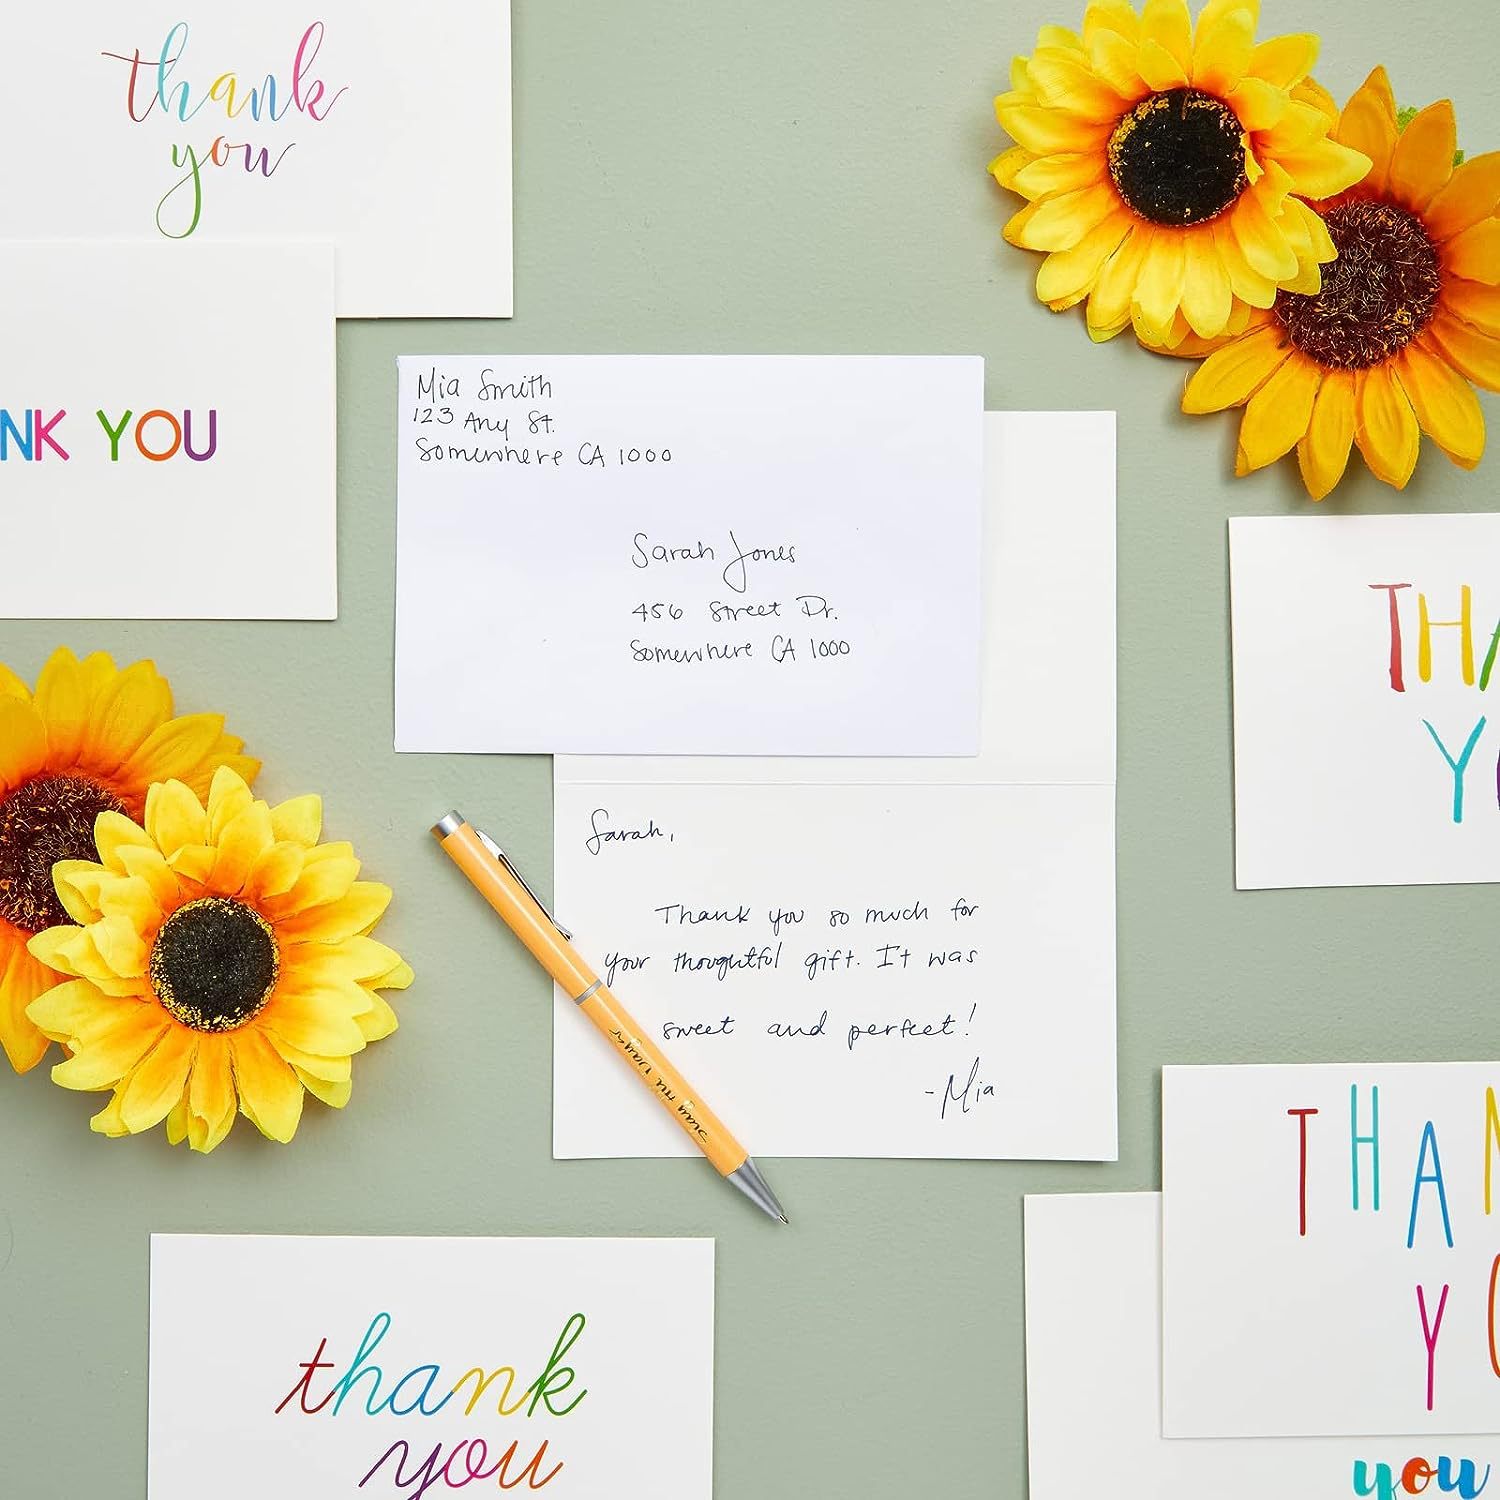 thank
you
NK YOU
Mia Smith
123 Any St.
Somewhere CA 1000
Sarah Jones
456 Street Dr.
Somewhere CA 1000
THA
Y
Sarah,
Thank you so much for
your thoughtful gift. It was
sweet and perfect!
-Mia
THAN
YO
thank
you
you